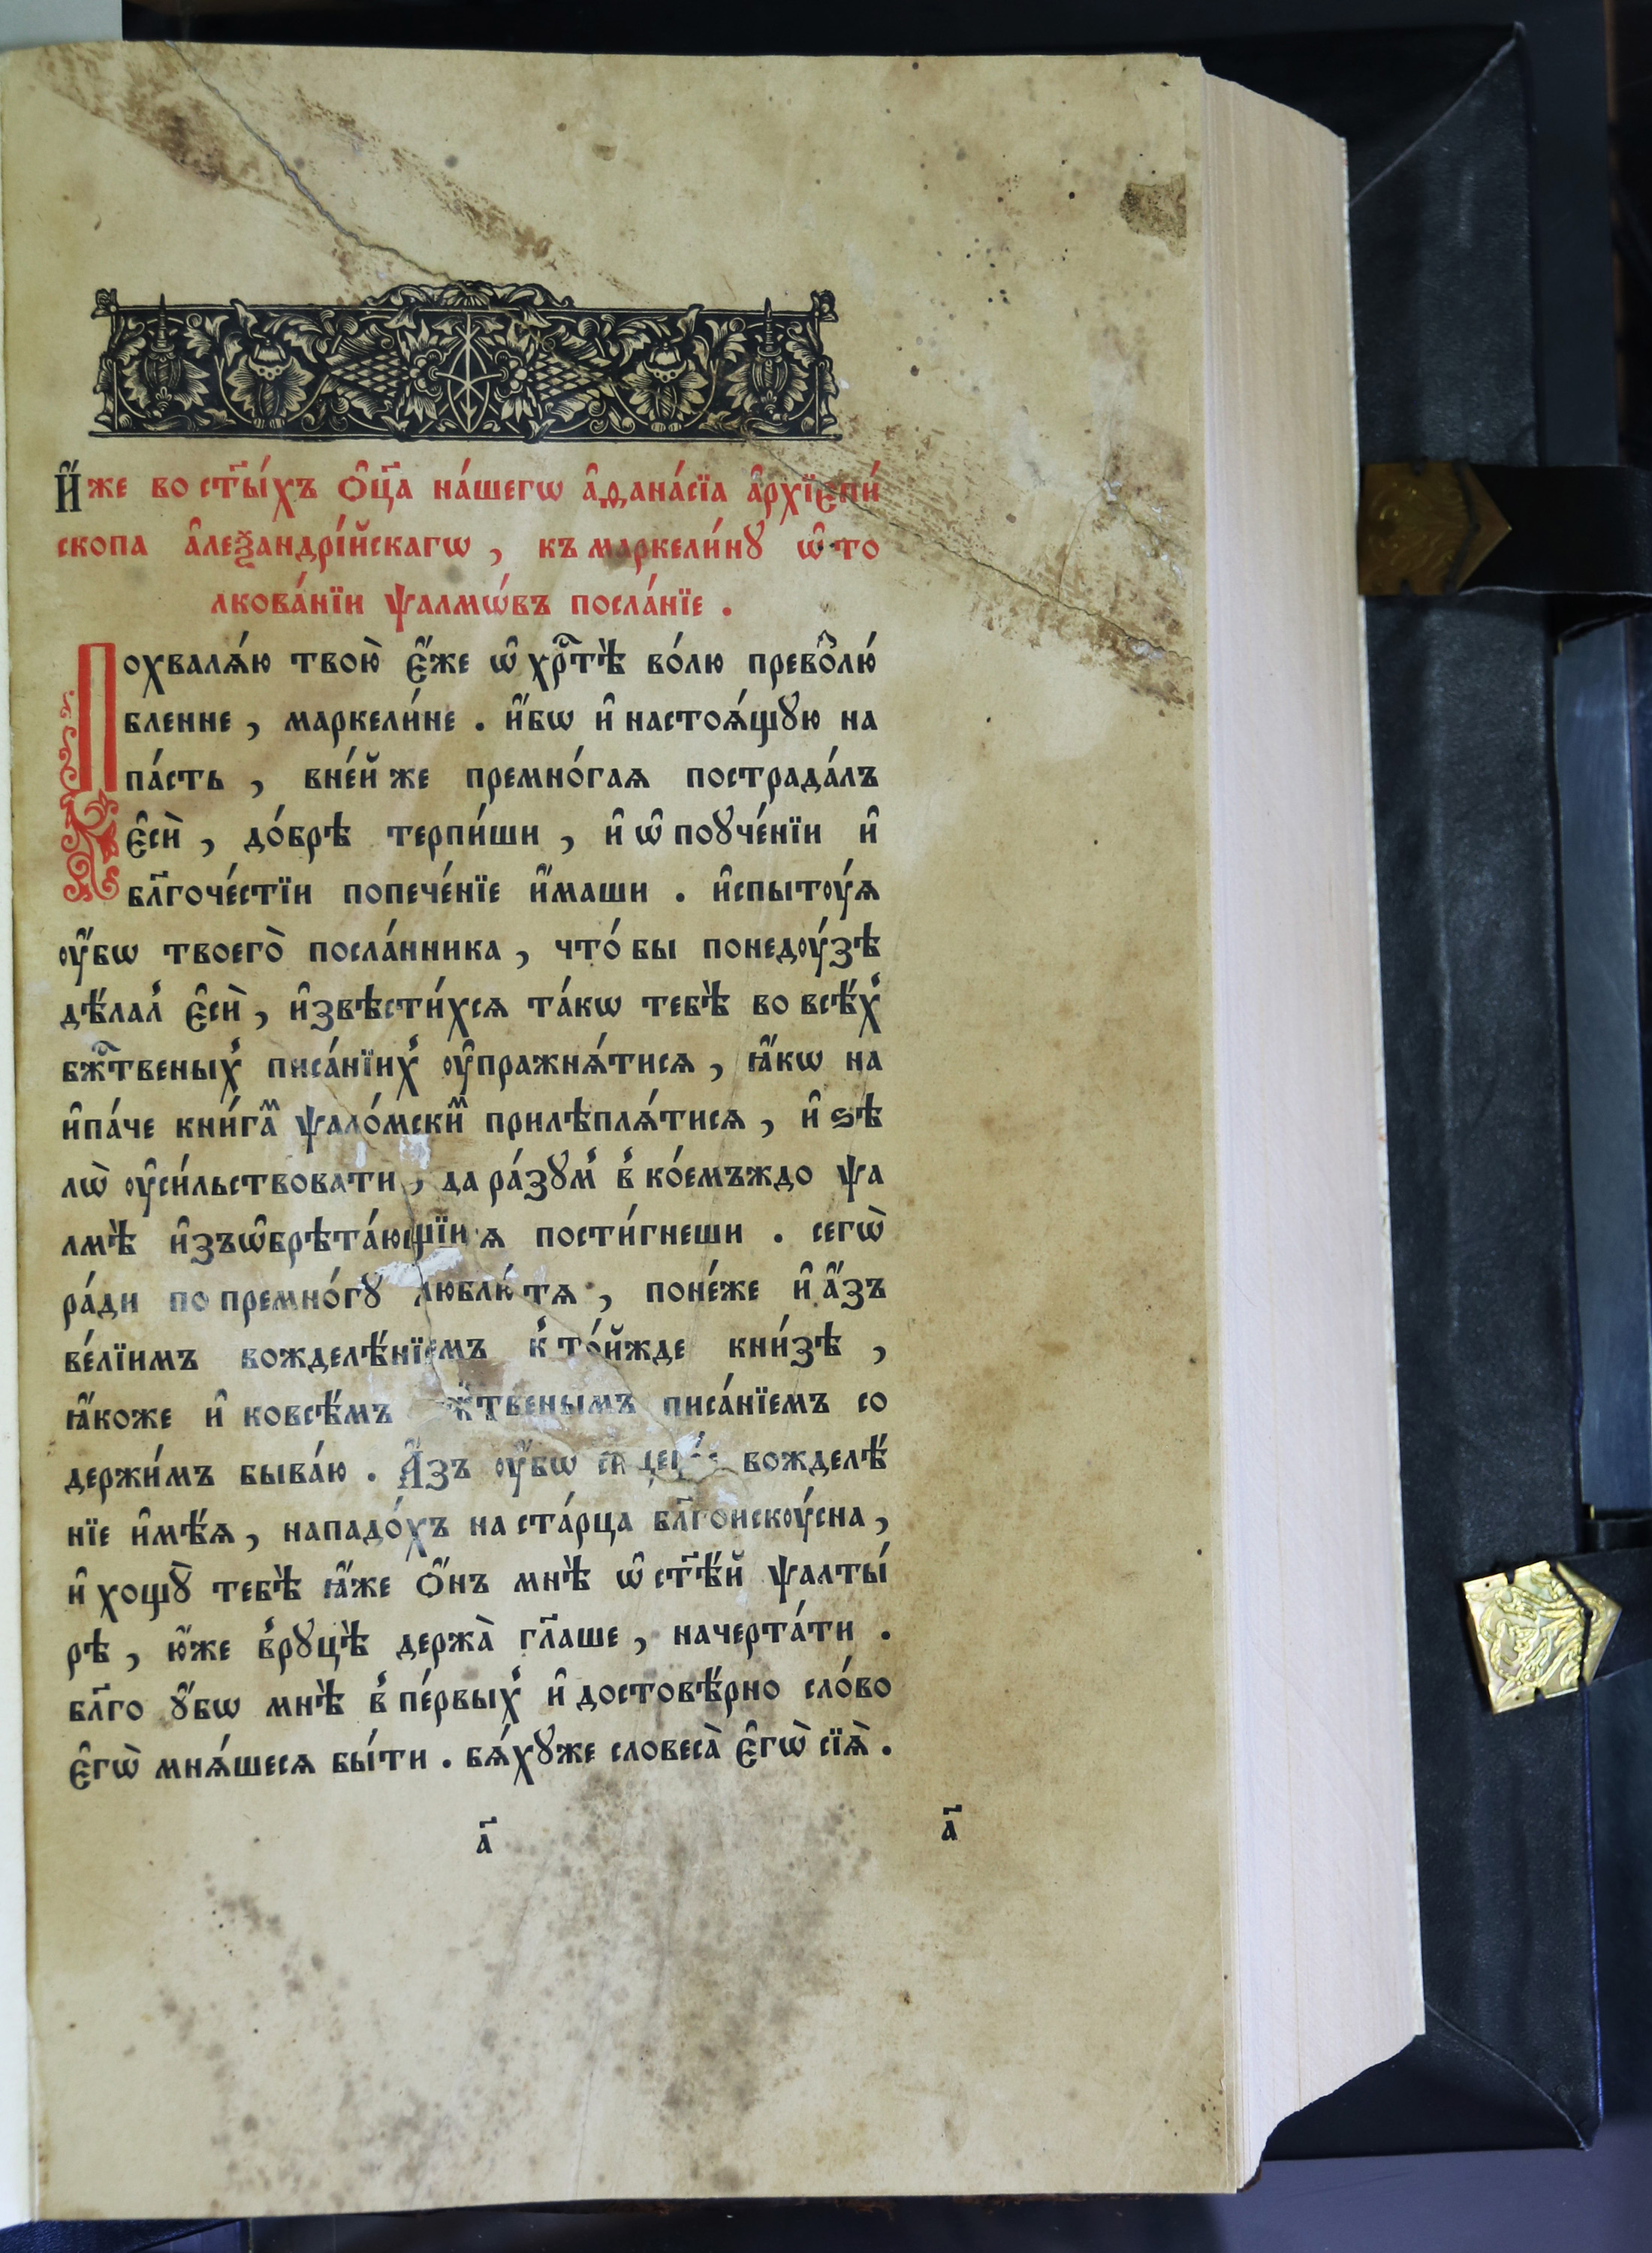 И҆́же во ст҃ы́хъ ѻ҆ц҃а на́шегѡ а҆ѳана́сїа а҆рхїепи́
скопа а҆леѯандрі́йскагѡ , къ маркели́нꙋ ѡ҆ то
лкова́нїи ѱалмѡ́въ посла́нїе .
Похвалѧ́ю твою̀ є҆́же ѡ҆ хрⷭ҇тѣ̀ во́лю прево̑лю́
бленне , маркели́не . и҆́бѡ и҆ настоѧ́щꙋю на
па́сть , вне́й же премно́гаѧ пострада́лъ
є҆сѝ , до́брѣ терпи́ши , и҆ ѡ҆ поꙋче́нїи и҆
бл҃гоче́стїи попече́нїе и҆́маши . и҆спытоу́ѧ
оу҆́бѡ твоего̀ посла́нника , что́ бы понедоу́зѣ
дѣ́лал̾ є҆сѝ , и҆звѣсти́хсѧ та́кѡ тебѣ̀ во всѣ́х̾
бжⷭ҇твеных̾ писа́нїих̾ оу҆пражнѧ́тисѧ , ꙗ҆́кѡ на
и҆па́че кни́гаⷨ ѱало́мскиⷨ прилѣплѧ́тисѧ , и҆ ѕѣ
лѡ̀ оу҆си́льствовати , да ра́зꙋм̾ в̾ ко́емъждо ѱа
лмѣ̀ и҆зъѡ҆брѣта́ющїи ѧ пости́гнеши . сегѡ̀
ра́ди по премно́гꙋ люблю́ тѧ , поне́же и҆ а҆́зъ
ве́лїимъ вожделѣ́нїемъ к̾ то́йжде кни́зѣ ,
ꙗ҆́коже и҆ ковсѣ́мъ жⷭ҇твенымъ писа́нїемъ со
держи́мъ быва́ю . А҆́зъ оу҆́бѡ вожделѣ́
нїе и҆мѣ́ѧ , нападо́хъ на ста́рца бл҃гоискоу́сна ,
и҆ хощꙋ̀ тебѣ̀ ꙗ҆́же ѻ҆́нъ мнѣ̀ ѡ҆ ст҃ѣ́й ѱалты́
рѣ , ю҆́же в̾рꙋцѣ̀ держа̀ гл҃аше , начерта́ти .
бл҃го ꙋ҆́бѡ мнѣ̀ в̾ пе́рвых̾ и҆ достовѣ́рно сло́во
є҆гѡ̀ мнѧ́шесѧ бы́ти . бѧ́хꙋже словеса̀ є҆гѡ̀ сїѧ̀ .
а҃ а҃